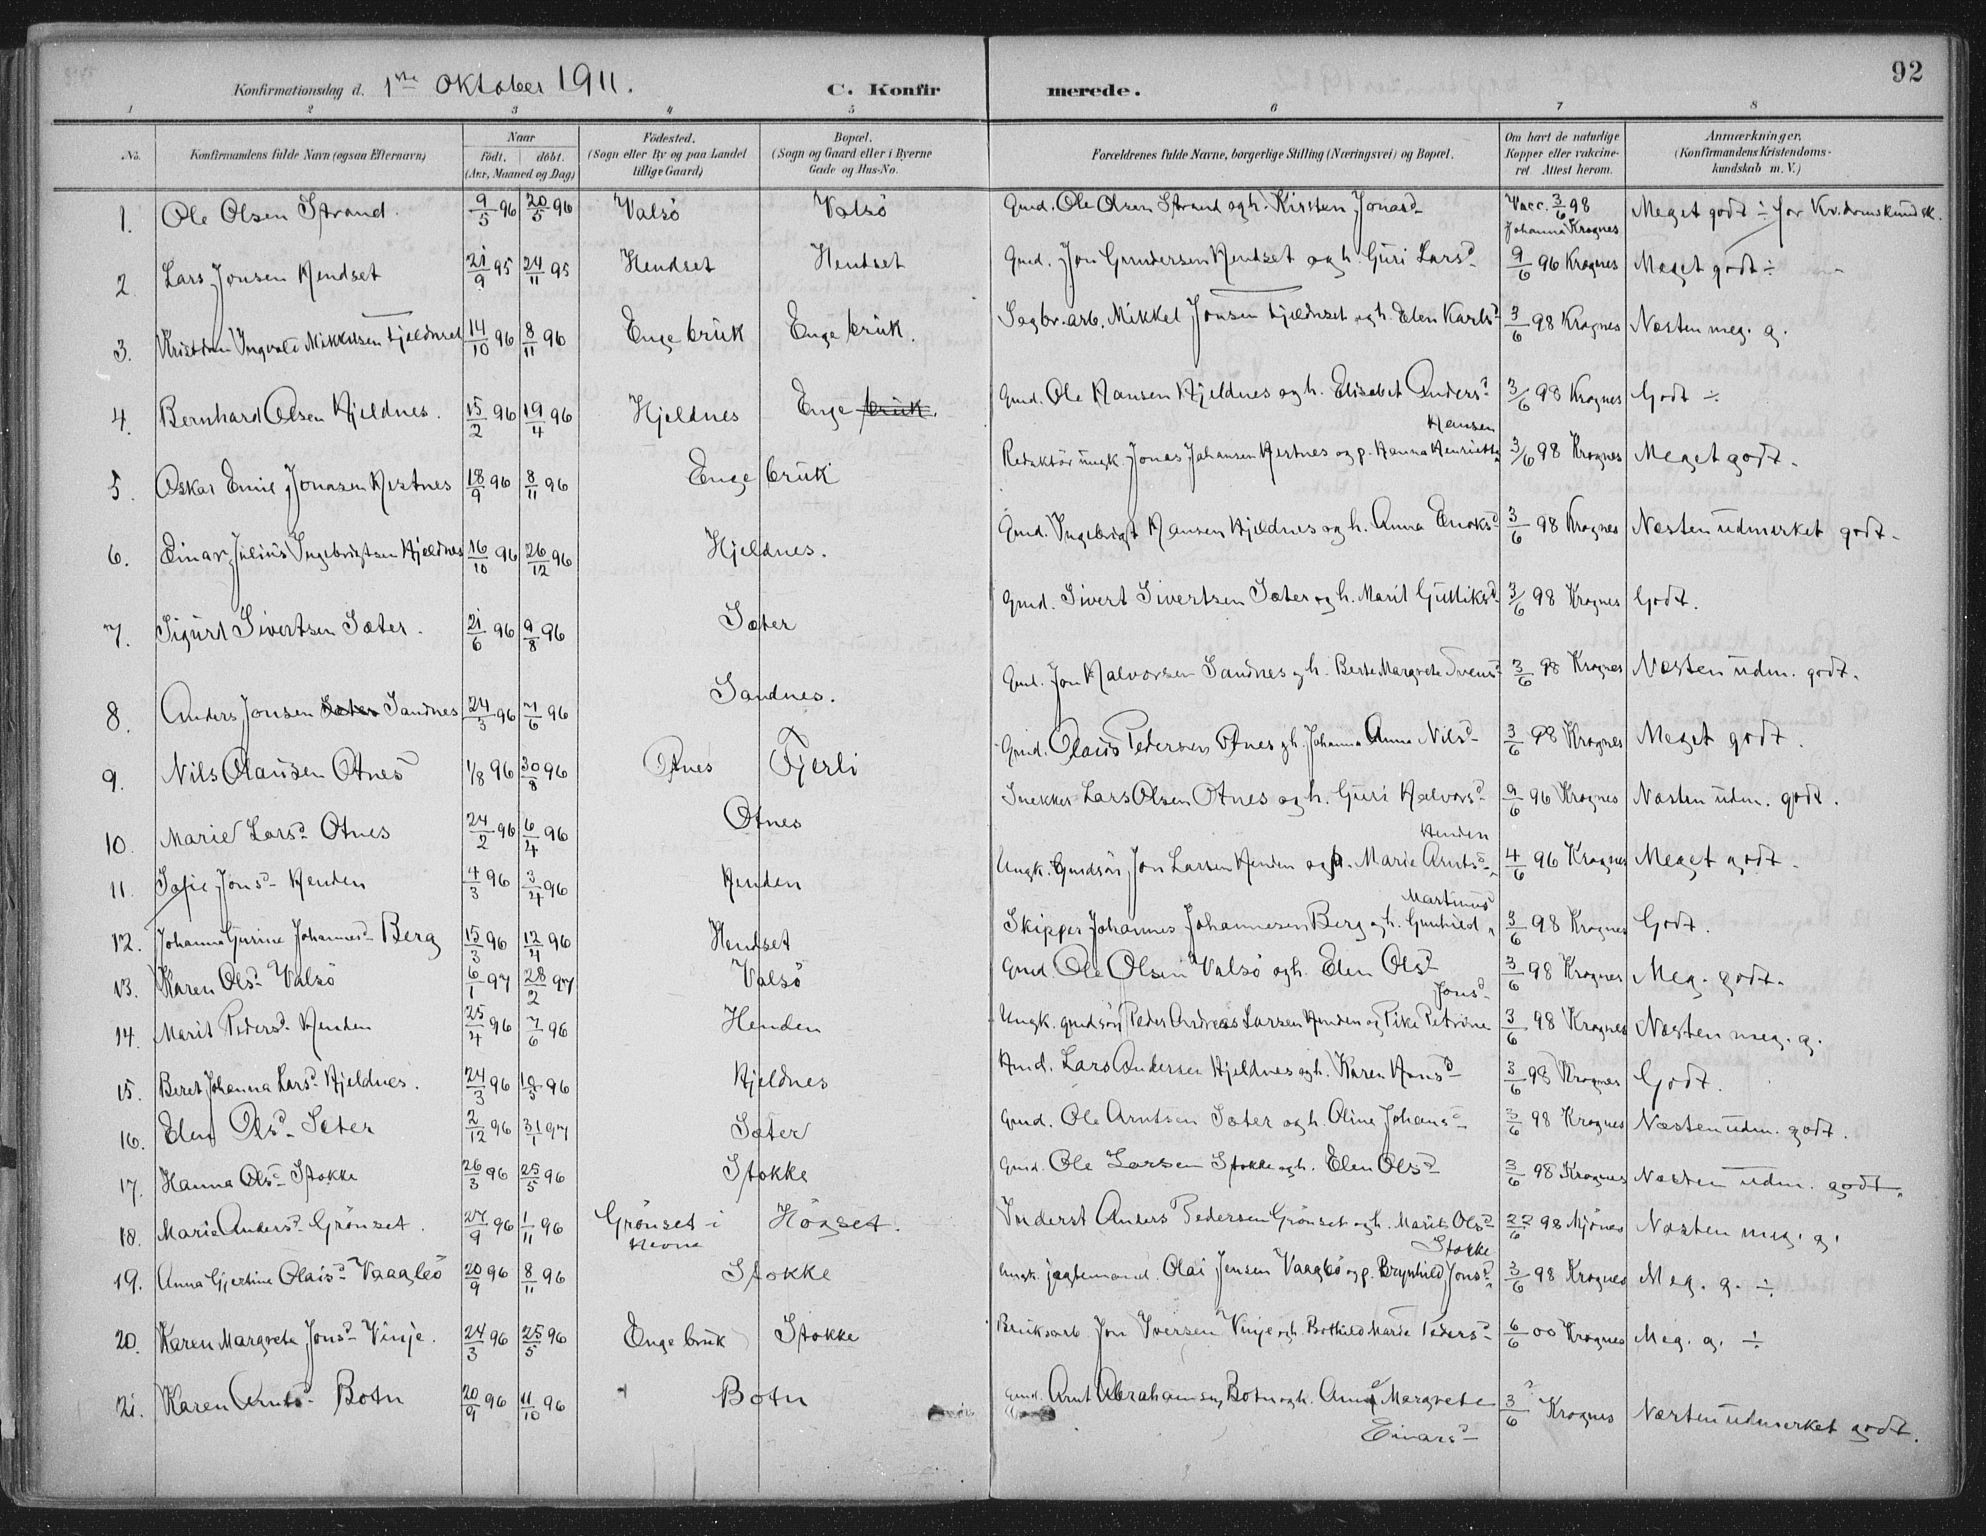 92
Konfirmationsdag d. 1ste Oktober 1911. C. Konfir merede.
1 2 3 4 5 6 7 8
No. Konfirmandens fulde Navn (ogsaa Efternavn) Naar født. døbt. (Aar, Maaned og Dag) Fødested. (Sogn eller By og paa Landet tillige Gaard) Bopæl. (Sogn og Gaard eller i Byerne Gade og Hus-No. Forældrenes fulde Navne, borgerlige Stilling (Næringsvei) og Bopæl. Om havt de naturlige Kopper eller vakcineret Attest herom. Anmærkninger. (Konfirmandens Kristendomskundskab m. V.)
1. Ole Olsen Strand. 9/5 96 20/5 96 Valsö Valsö Gmd. Ole Olsen Strand og h. Kirsten Jonasd. Vacc. 3/6 98 Johanna Krognes Meget godt ÷ for Kr.domskundsk.
2. Lars Jonsen Hendset 21/9 95 24/11 95 Hendset Hendset Gmd. Jon Gundersen Hendset og h. Guri Larsd. 9/6 96 Krognes Meget godt ÷
3. Kristian Ingvald Mikkelsen Fjeldnset 14/10 96 8/11 96 Enge brük Enge brük. Sagbr.arb. Mikkel Jonsen Fjeldnset og h. Elen Karlsd. 3/6 98 Krognes Næsten meg. g.
4. Bernhard Olsen Hjeldnes. 15/2 96 19/4 96 Hjeldnes Enge brük. Gmd. Ole Hansen Hjeldnes og h. Elisabet Andersd. 3/6 98 Krognes Godt ÷
5. Oskar Emil Jonasen Hestnes 18/9 96 8/11 96 Enge brük Redaktör ungk. Jonas Johansen Hestnes og p. Hanna Henriette Hansen 3/6 98 Krognes Meget godt.
6. Einar Julius Ingebrigtsen Hjeldnes 16/10 96 26/12 96 Hjeldnes. Gmd. Ingebrigt Hansen Hjeldnes og h. Anna Enoksd. 3/6 98 Krognes Næsten üdmerket godt.
7. Sigurd Sivertsen Sæter. 21/6 96 9/8 96 Sæter Gmd. Sivert Sivertsen Sæter og h. Marit Gulliksd. 3/6 98 Krognes Godt.
8. Anders Jonsen Sæter Sandnes 24/3 96 7/6 96 Sandnes. Gmd. Jon Halvorsen Sandnes og h. Berte Margrete Svensd. 3/6 98 Krognes Næsten üdm. godt.
9. Nils Olausen Otnes 1/8 96 30/8 96 Otnes Fjerli Gmd. Olaus Pedersen Otnes og h. Johanna Anna Nilsd. 3/6 98 Krognes Meget godt.
10. Marie Larsd. Otnes 24/2 96 6/4 96 Otnes Snekker Lars Olsen Otnes og h. Guri Halvorsd. 9/6 96 Krognes Næsten üdm. godt.
11. Sofie Jonsd. Henden 4/3 96 3/4 96 Henden Ungk. Gmdsön Jon Larsen Henden og p. Marie Arntsd. Henden 4/6 96 Krognes Meget godt.
12. Johanna Gurine Johannesd. Berg 15/3 96 12/4 96 Hendset Skipper Johannes Johannesen Berg og h. Gunhild Martinusd. 3/6 98 Krognes Godt.
13. Karen Olsd. Valsö 6/1 97 28/2 97 Valsö Gmd. Ole Olsen Valsö og h. Elen Olsd. 3/6 98 Krognes Meg. godt.
14. Marit Pedersd. Henden 25/4 96 7/6 96 Henden Ungk. gmdsön Peder Andreas Larsen Henden og Pike Petrine Jonsd. 3/6 98 Krognes Næsten meg. g.
15. Beret Johanna Larsd. Hjeldnes. 24/3 96 10/5 96 Hjeldnes Gmd. Lars Andersen Hjeldnes og h. Karen Hansd. 3/6 98 Krognes Godt.
16. Elen Olsd. Sæter 2/12 96 31/1 97 Sæter Gmd. Ole Arntsen Sæter og h. Oline Johansd. 3/6 98 Krognes Næsten üdm. godt.
17. Hanna Olsd. Stokke 26/3 96 25/5 96 Stokke Gmd. Ole Larsen Stokke og h. Elen Olsd. 3/6 98 Krognes Næsten üdm. godt.
18. Marie Andersd. Grönset. 27/9 96 1/11 96 Grönset i Hevne Högset. Inderst Anders Pedersen Grönset og h. Marit Olsd. 22/6 98 Mjönes Næsten meg. g.
19. Anna Gjertine Olaisd. Vaagbö 20/9 96 8/11 96 Stokke Ungk. jagtemand. Olai Jensen Vaagbö og p. Brynhild Jonsd. Stokke 3/6 98 Krognes Meg. g. ÷
20. Karen Margrete Jonsd. Vinje. 24/3 96 25/5 96 Enge brük Stokke Bruksarb. Jon Iversen Vinje og h. Bothild Marie Pedersd. 6/6 00 Krognes Meg. g. ÷
21. Karen Arntsd. Botn 20/9 96 11/10 96 Botn Gmd. Arnt Abrahamsen Botn og h. Ane Margrete Einarsd. 3/6 ? Krognes Næsten üdmerket godt.